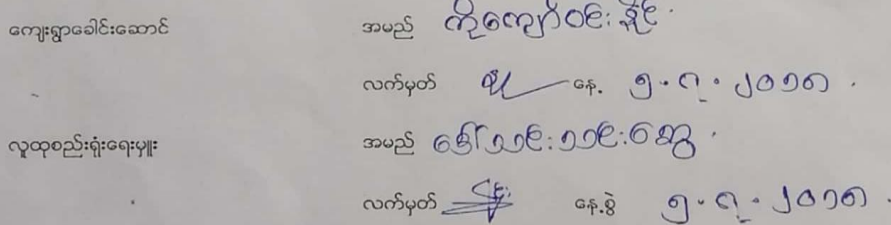 ကျေးရွာခေါင်းဆောင် အမည် ကိုကျော်ဝင်းနိုင်
လက်မှတ် နေ့ ၅.၇.၂၀၁၈
လူထုစည်းရုံးရေးမှူး အမည် ဒေါ်သင်းသင်းဆွေ
လက်မှတ် နေ့စွဲ ၅.၇.၂၀၁၈